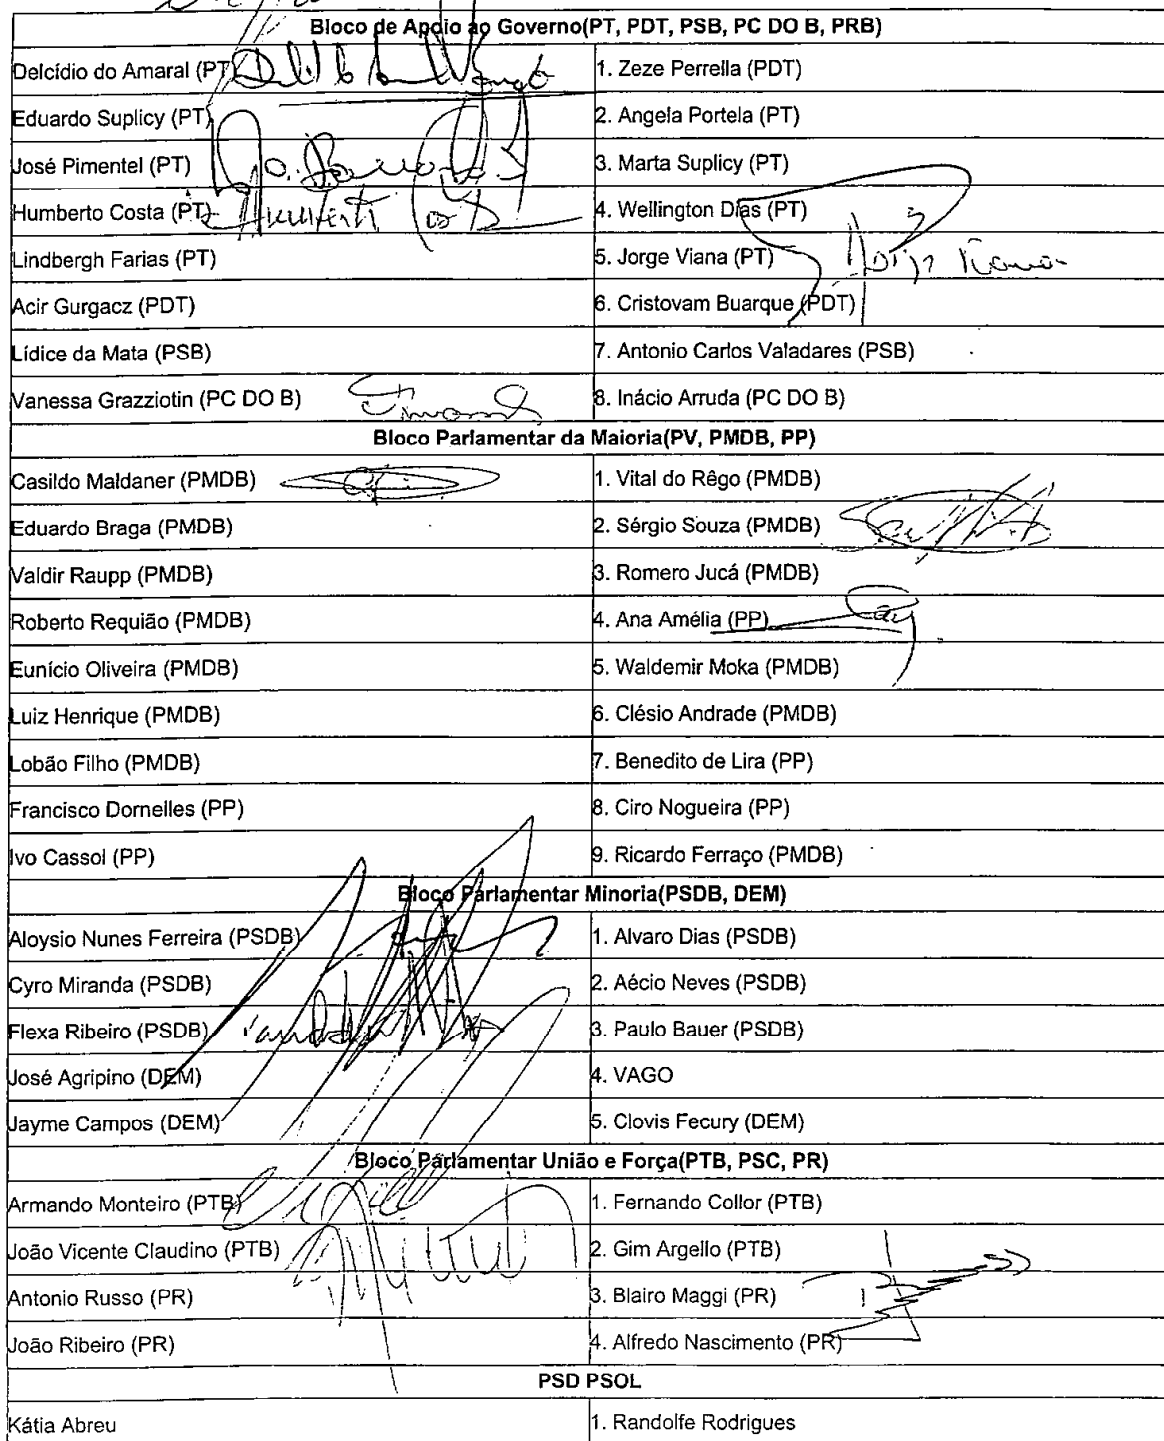 Bloco de Apoio ao Governo(PT, PDT, PSB, PC DO B, PRB)
Delcídio do Amaral (PT) 1. Zeze Perrella (PDT)
Eduardo Suplicy (PT) 2. Angela Portela (PT)
José Pimentel (PT) 3. Marta Suplicy (PT)
Humberto Costa (PT) Humberto Costa 4. Wellington Dias (PT)
Lindbergh Farias (PT) 5. Jorge Viana (PT) Jorge Viana
Acir Gurgacz (PDT) 6. Cristovam Buarque (PDT)
Lídice da Mata (PSB) 7. Antonio Carlos Valadares (PSB)
Vanessa Grazziotin (PC DO B) 8. Inácio Arruda (PC DO B)
Bloco Parlamentar da Maioria(PV, PMDB, PP)
Casildo Maldaner (PMDB) 1. Vital do Rêgo (PMDB)
Eduardo Braga (PMDB) 2. Sérgio Souza (PMDB)
Valdir Raupp (PMDB) 3. Romero Jucá (PMDB)
Roberto Requião (PMDB) 4. Ana Amélia (PP)
Eunício Oliveira (PMDB) 5. Waldemir Moka (PMDB)
Luiz Henrique (PMDB) 6. Clésio Andrade (PMDB)
Lobão Filho (PMDB) 7. Benedito de Lira (PP)
Francisco Dornelles (PP) 8. Ciro Nogueira (PP)
Ivo Cassol (PP) 9. Ricardo Ferraço (PMDB)
Bloco Parlamentar Minoria(PSDB, DEM)
Aloysio Nunes Ferreira (PSDB) 1. Alvaro Dias (PSDB)
Cyro Miranda (PSDB) 2. Aécio Neves (PSDB)
Flexa Ribeiro (PSDB) 3. Paulo Bauer (PSDB)
José Agripino (DEM) 4. VAGO
Jayme Campos (DEM) 5. Clovis Fecury (DEM)
Bloco Parlamentar União e Força(PTB, PSC, PR)
Armando Monteiro (PTB) 1. Fernando Collor (PTB)
João Vicente Claudino (PTB) 2. Gim Argello (PTB)
Antonio Russo (PR) 3. Blairo Maggi (PR)
João Ribeiro (PR) 4. Alfredo Nascimento (PR)
PSD PSOL
Kátia Abreu 1. Randolfe Rodrigues